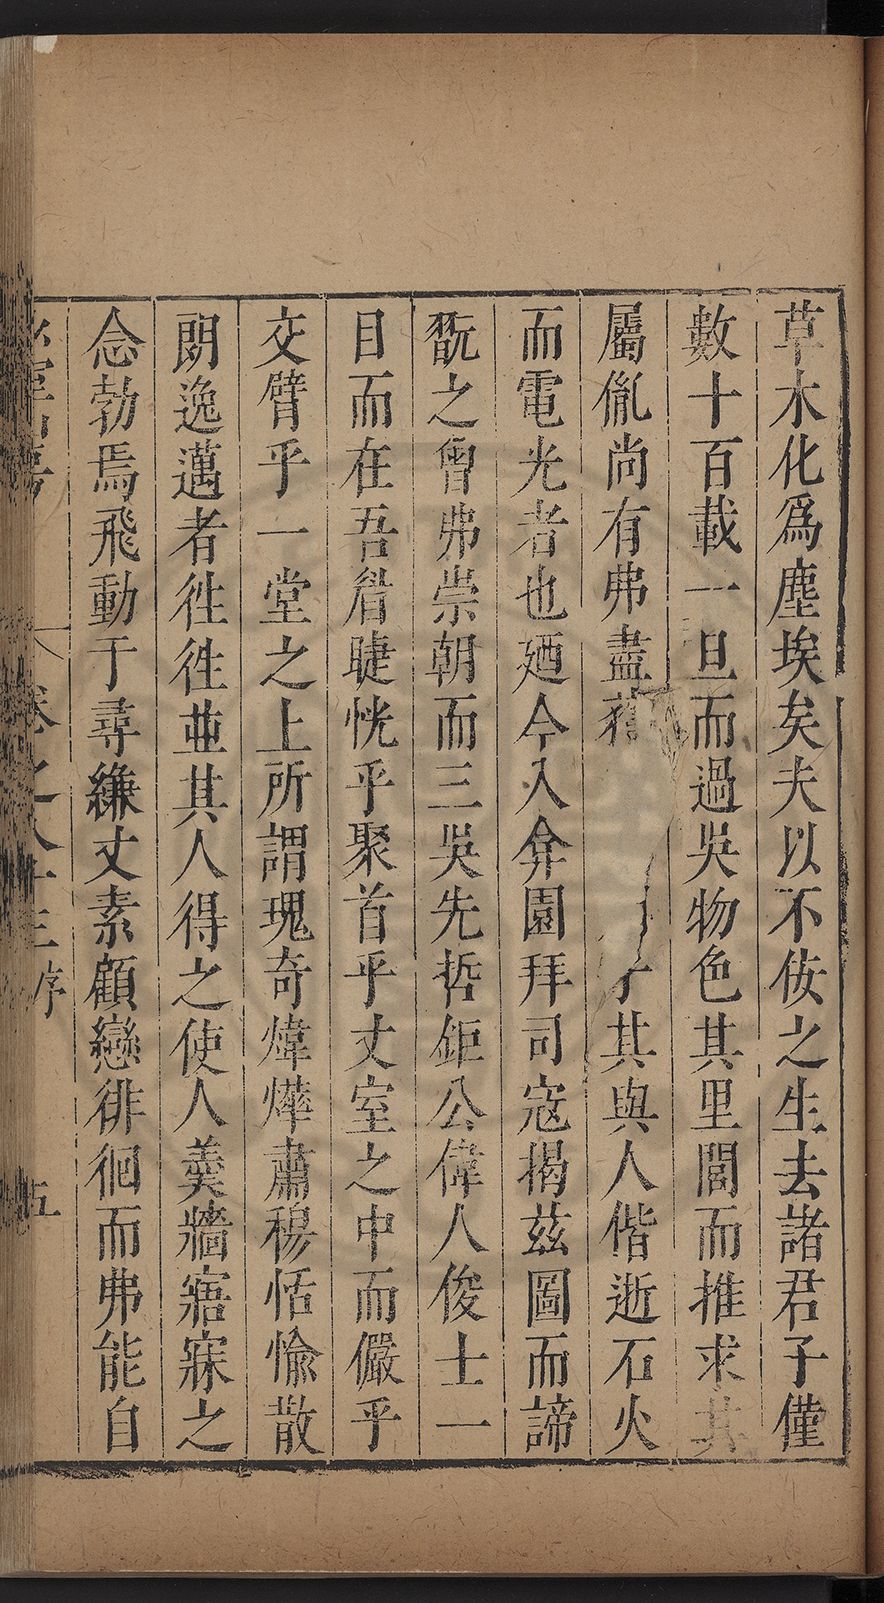 草木化爲塵埃矣夫以不佞之生去諸君子僅
數十百載一旦而過吳物色其里閭而推求其
屬胤尚有弗盡 其與人偕逝石火
而電光者也廼今入弇園拜司宼揭茲圖而諦
翫之曾弗崇朝而三吳先哲鉅公偉人俊士一
目而在吾眉睫恍乎聚首乎丈室之中而儼乎
交臂乎一堂之上所謂瑰奇煒燁肅穆恬愉散
朗逸邁者徃徃並其人得之使人羹牆寤寐之
念勃焉飛動于尋縑丈素顧戀徘徊而弗能自
卷之八十三序 五